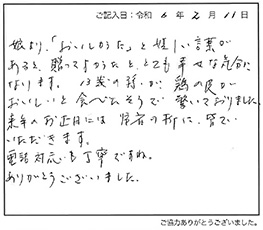 ご記入日：令和 6 年 2 月 11 日
娘より、「おいしかった」と嬉しい言葉が
あると、贈ってよかったと、とても幸せな気分に
なります。13歳の孫が鶏の皮が
おいしいと食べたそうで驚いておりました。
来年のお正月には帰省の折に、皆で
いただきます。
電話対応も丁寧ですね。
ありがとうございました。
ご協力ありがとうございました。